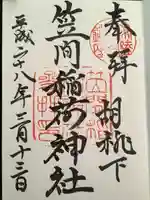 奉拝 胡桃下
笠間稲荷神社
平成二十八年三月十三日